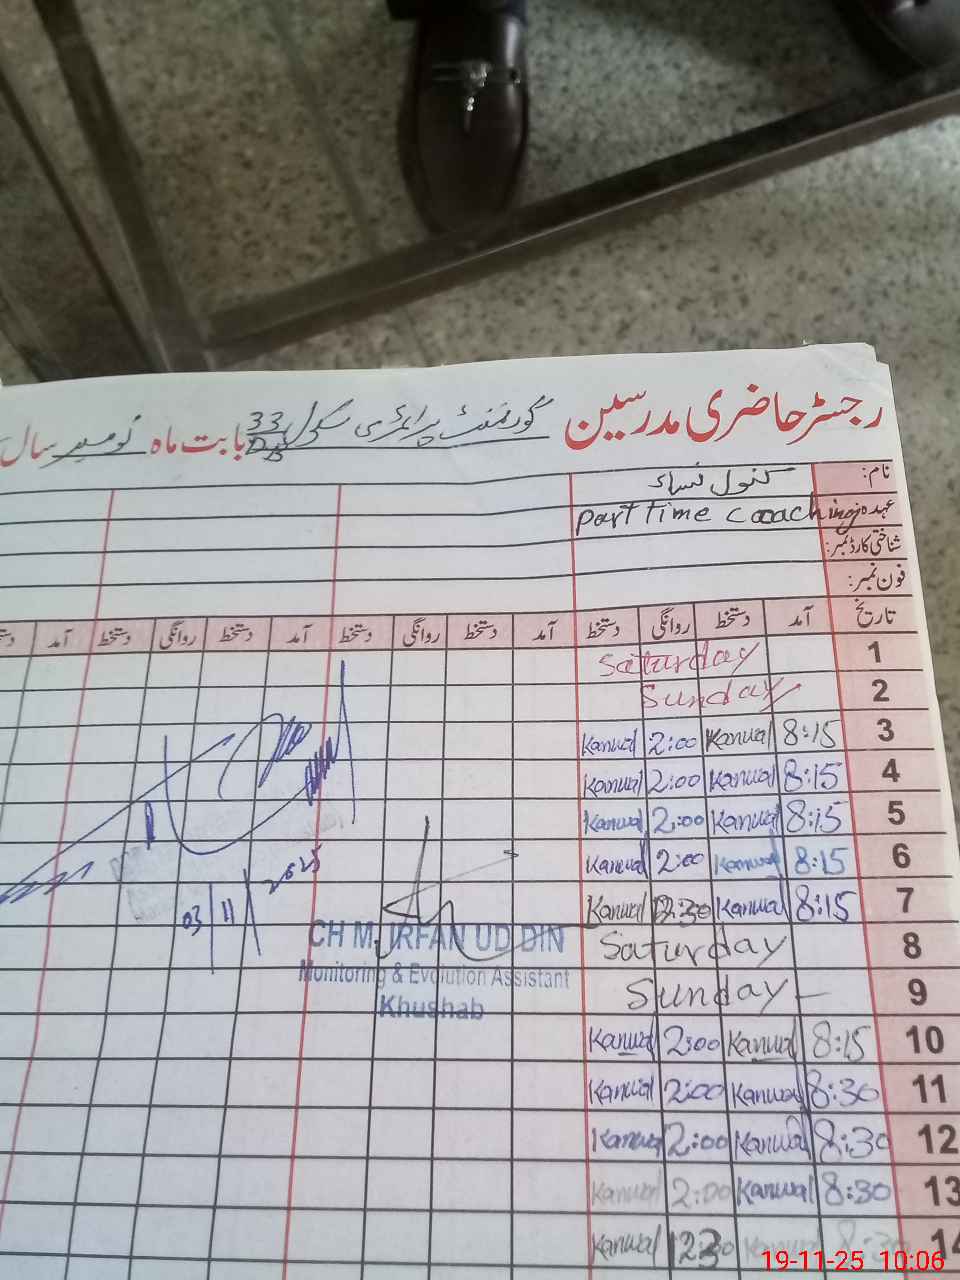 رجسٹر حاضری مدرسین گورنمنٹ پرائمری سکول 33 DB بابت ماہ نومبر سال
نام: کنول نساء
عہدہ: part time coaching
شناختی کارڈ نمبر:
فون نمبر:
تاریخ آمد دستخط روانگی دستخط آمد دستخط روانگی دستخط آمد دستخط روانگی دستخط آمد
1 Saturday
2 Sunday
3 8:15 Kanwal 2:00 Kanwal
4 8:15 Kanwal 2:00 Kanwal
5 8:15 Kanwal 2:00 Kanwal
6 8:15 Kanwal 2:00 Kanwal
7 8:15 Kanwal 12:30 Kanwal
8 Saturday
9 Sunday
10 8:15 Kanwal 2:00 Kanwal
11 8:30 Kanwal 2:00 Kanwal
12 8:30 Kanwal 2:00 Kanwal
13 8:30 Kanwal 2:00 Kanwal
14 8:30 Kanwal Kanwal
03/11/2025
CH M. IRFAN UD DIN
Monitoring & Evolution Assistant
Khushab
19-11-25 10:06